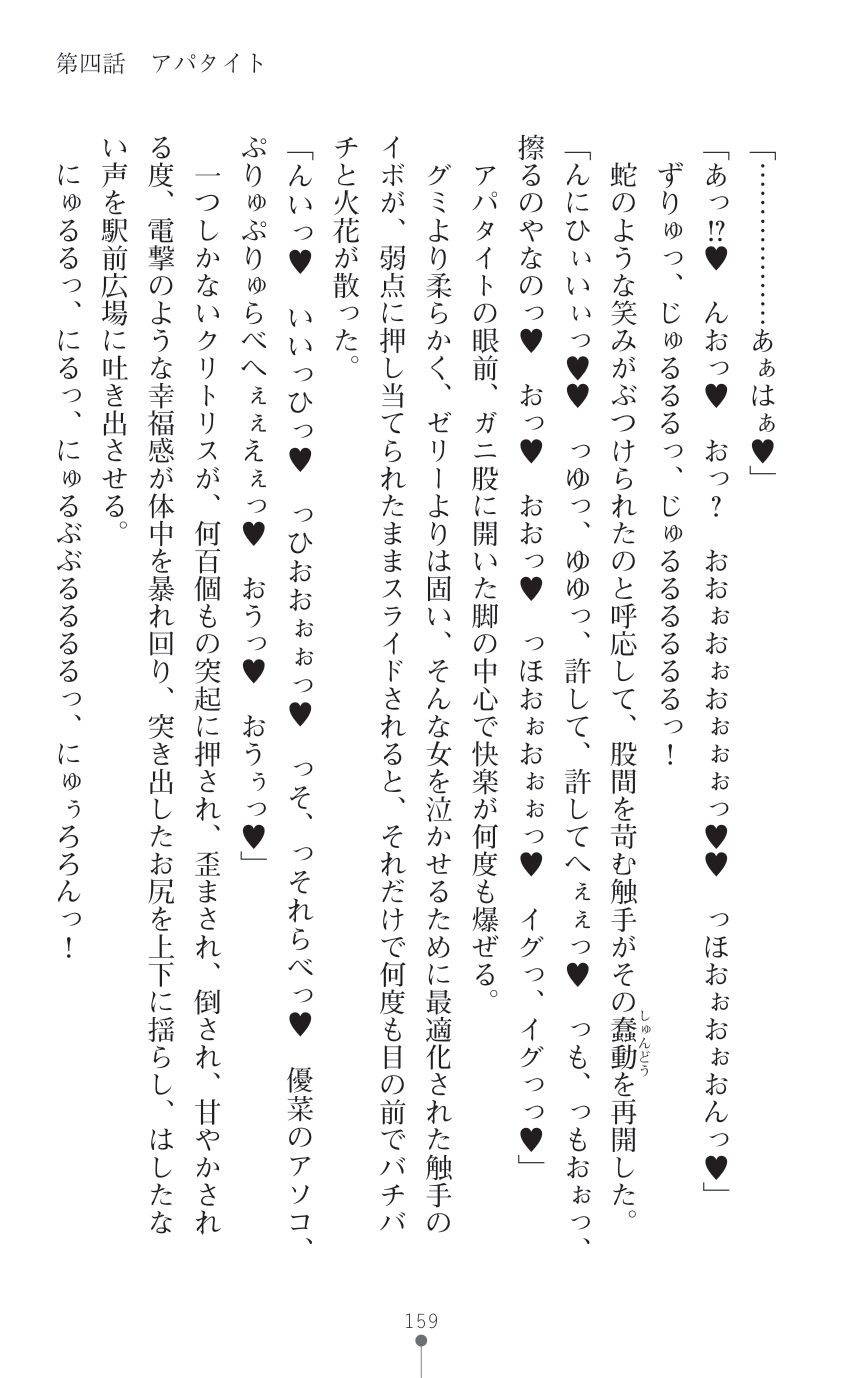 第四話　アパタイト
「………………あぁはぁ♥」
「あっ!?♥　んおっ♥　おっ？　おおぉおぉおぉぉぉっ♥♥　っほおぉおぉおんっ♥」
ずりゅっ、じゅるるるっ、じゅるるるるるるっ！
蛇のような笑みがぶつけられたのと呼応して、股間を苛む触手がその蠢動を再開した。
しゅんどう
「んにひぃいぃっ♥♥　っゆっ、ゆゆっ、許して、許してへぇぇっ♥　っも、っもおぉっ、
擦るのやなのっ♥　おっ♥　おおっ♥　っほおぉおぉぉっ♥　イグっ、イグっっ♥」
アパタイトの眼前、ガニ股に開いた脚の中心で快楽が何度も爆ぜる。
グミより柔らかく、ゼリーよりは固い、そんな女を泣かせるために最適化された触手の
イボが、弱点に押し当てられたままスライドされると、それだけで何度も目の前でバチバ
チと火花が散った。
「んいっ♥　いいっひっ♥　っひおおぉぉっ♥　っそ、っそれらべっ♥　優菜のアソコ、
ぷりゅぷりゅらべへぇぇえぇっ♥　おうっ♥　おうぅっ♥」
一つしかないクリトリスが、何百個もの突起に押され、歪まされ、倒され、甘やかされ
る度、電撃のような幸福感が体中を暴れ回り、突き出したお尻を上下に揺らし、はしたな
い声を駅前広場に吐き出させる。
にゅるるっ、にるっ、にゅるぶぶるるるるっ、にゅぅろろんっ！
159